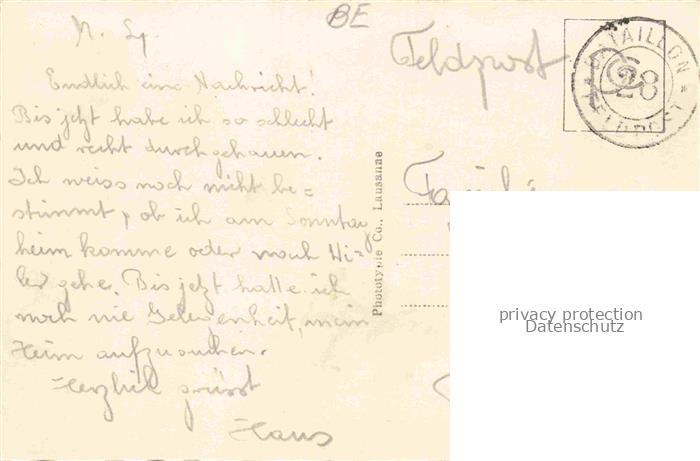 BE
N. Lg.
Endlich eine Nachricht!
Bis jetzt habe ich so schlecht
und recht durchgehauen.
Ich weiss noch nicht be=
stimmt, ob ich am Sonntag
heim komme oder nach Wi=
ler gehe. Bis jetzt hatte ich
noch nie Gelegenheit, mein
Heim aufzusuchen.
Herzlich grüsst
Hans
Phototypie Co., Lausanne
Feldpost
BATAILLON
28
FELDPOST
Familie
privacy protection
Datenschutz